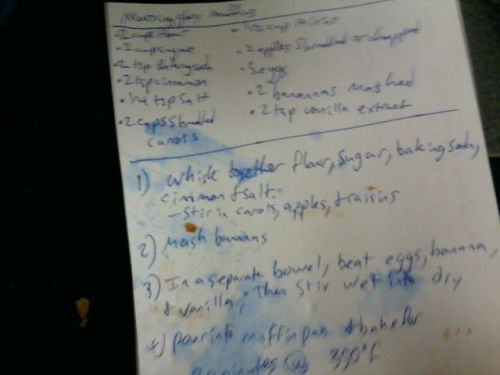 Morning glory muffins
• 2 cups flour
• 1 cup sugar
• 2 tsp baking soda
• 2 tsp cinnamon
• 1/4 tsp salt
• 2 cups shredded
carrots
cup raisins
• 2 apples shredded or chopped
• 3 eggs
• 2 bananas mashed
• 2 tsp vanilla extract
1) whisk together flour, sugar, baking soda,
cinimon & salt.
- Stir in carots, apples, & raisins
2) Mash bananas
3) In a separate bowel, beat eggs, banana,
& vanilla, Then stir wet into dry
4) pour into muffin pan & bake for
minutes @ 350°f